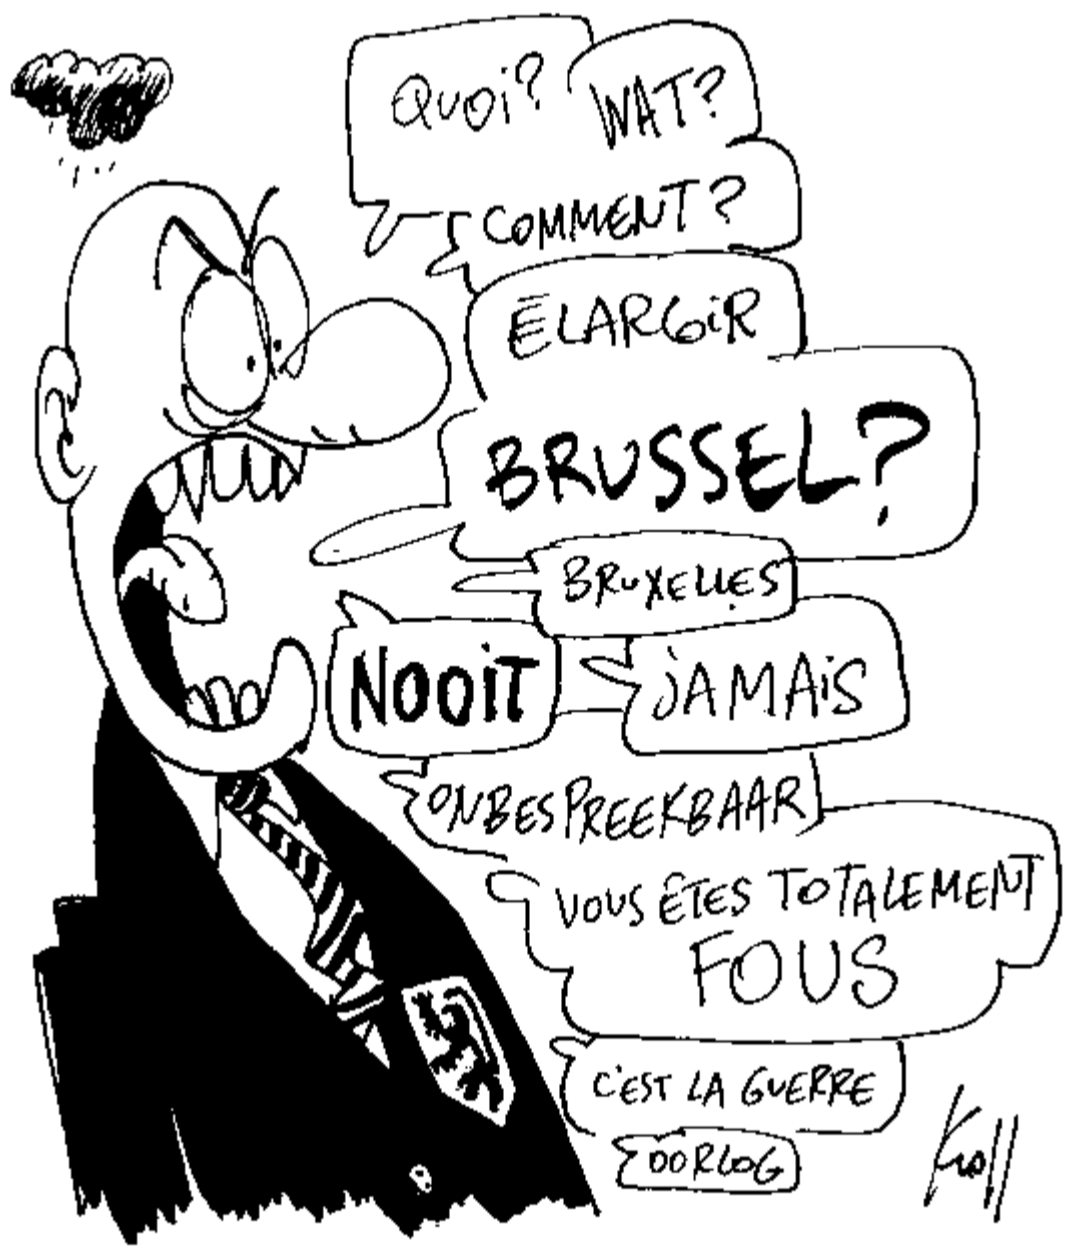 QUOI?
WAT?
COMMENT?
ÉLARGIR
BRUSSEL?
BRUXELLES
NOOIT
JAMAIS
ONBESPREEKBAAR
VOUS ÊTES TOTALEMENT
FOUS
C'EST LA GUERRE
OORLOG
Kroll